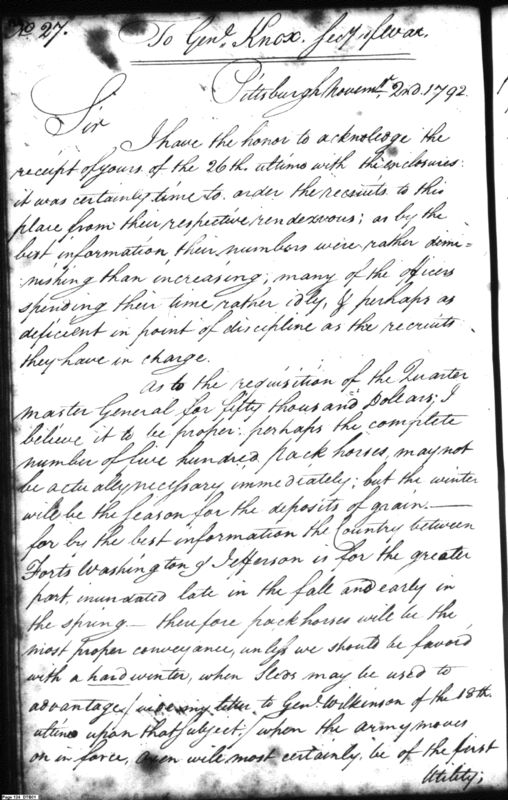 No. 27.
To Genl. Knox. Secy. of War.
Pittsburgh Novemr. 2nd. 1792
Sir
I have the honor to acknoledge the
receipt of yours of the 26th. ultimo with the enclosures:
it was certainly time to order the recruits to this
place from their respective rendezvous; as by the
best information, their numbers were rather demi=
nishing than increasing; many of the officers
spending their time rather idly, & perhaps as
deficient in point of discipline as the recruits
they have in charge.
As to the requisition of the Quarter
master General for fifty thousand Dollars; I
believe it to be proper: perhaps the complete
number of five hundred pack horses, may not
be actually necessary immediately; but the winter
will be the season for the deposits of grain.—
for by the best information the Country between
Forts Washington & Jefferson is for the greater
part, inundated late in the fall and early in
the spring— therefore pack horses will be the
most proper conveyance, unless we should be favord
with a hard winter, when Sleds may be used to
advantage/ vide my letter to Genl. Wilkinson of the 18th.
ultimo upon that subject;/ when the army moves
on in force, Oxen will most certainly, be of the first
Utility;
Page 134 of 801